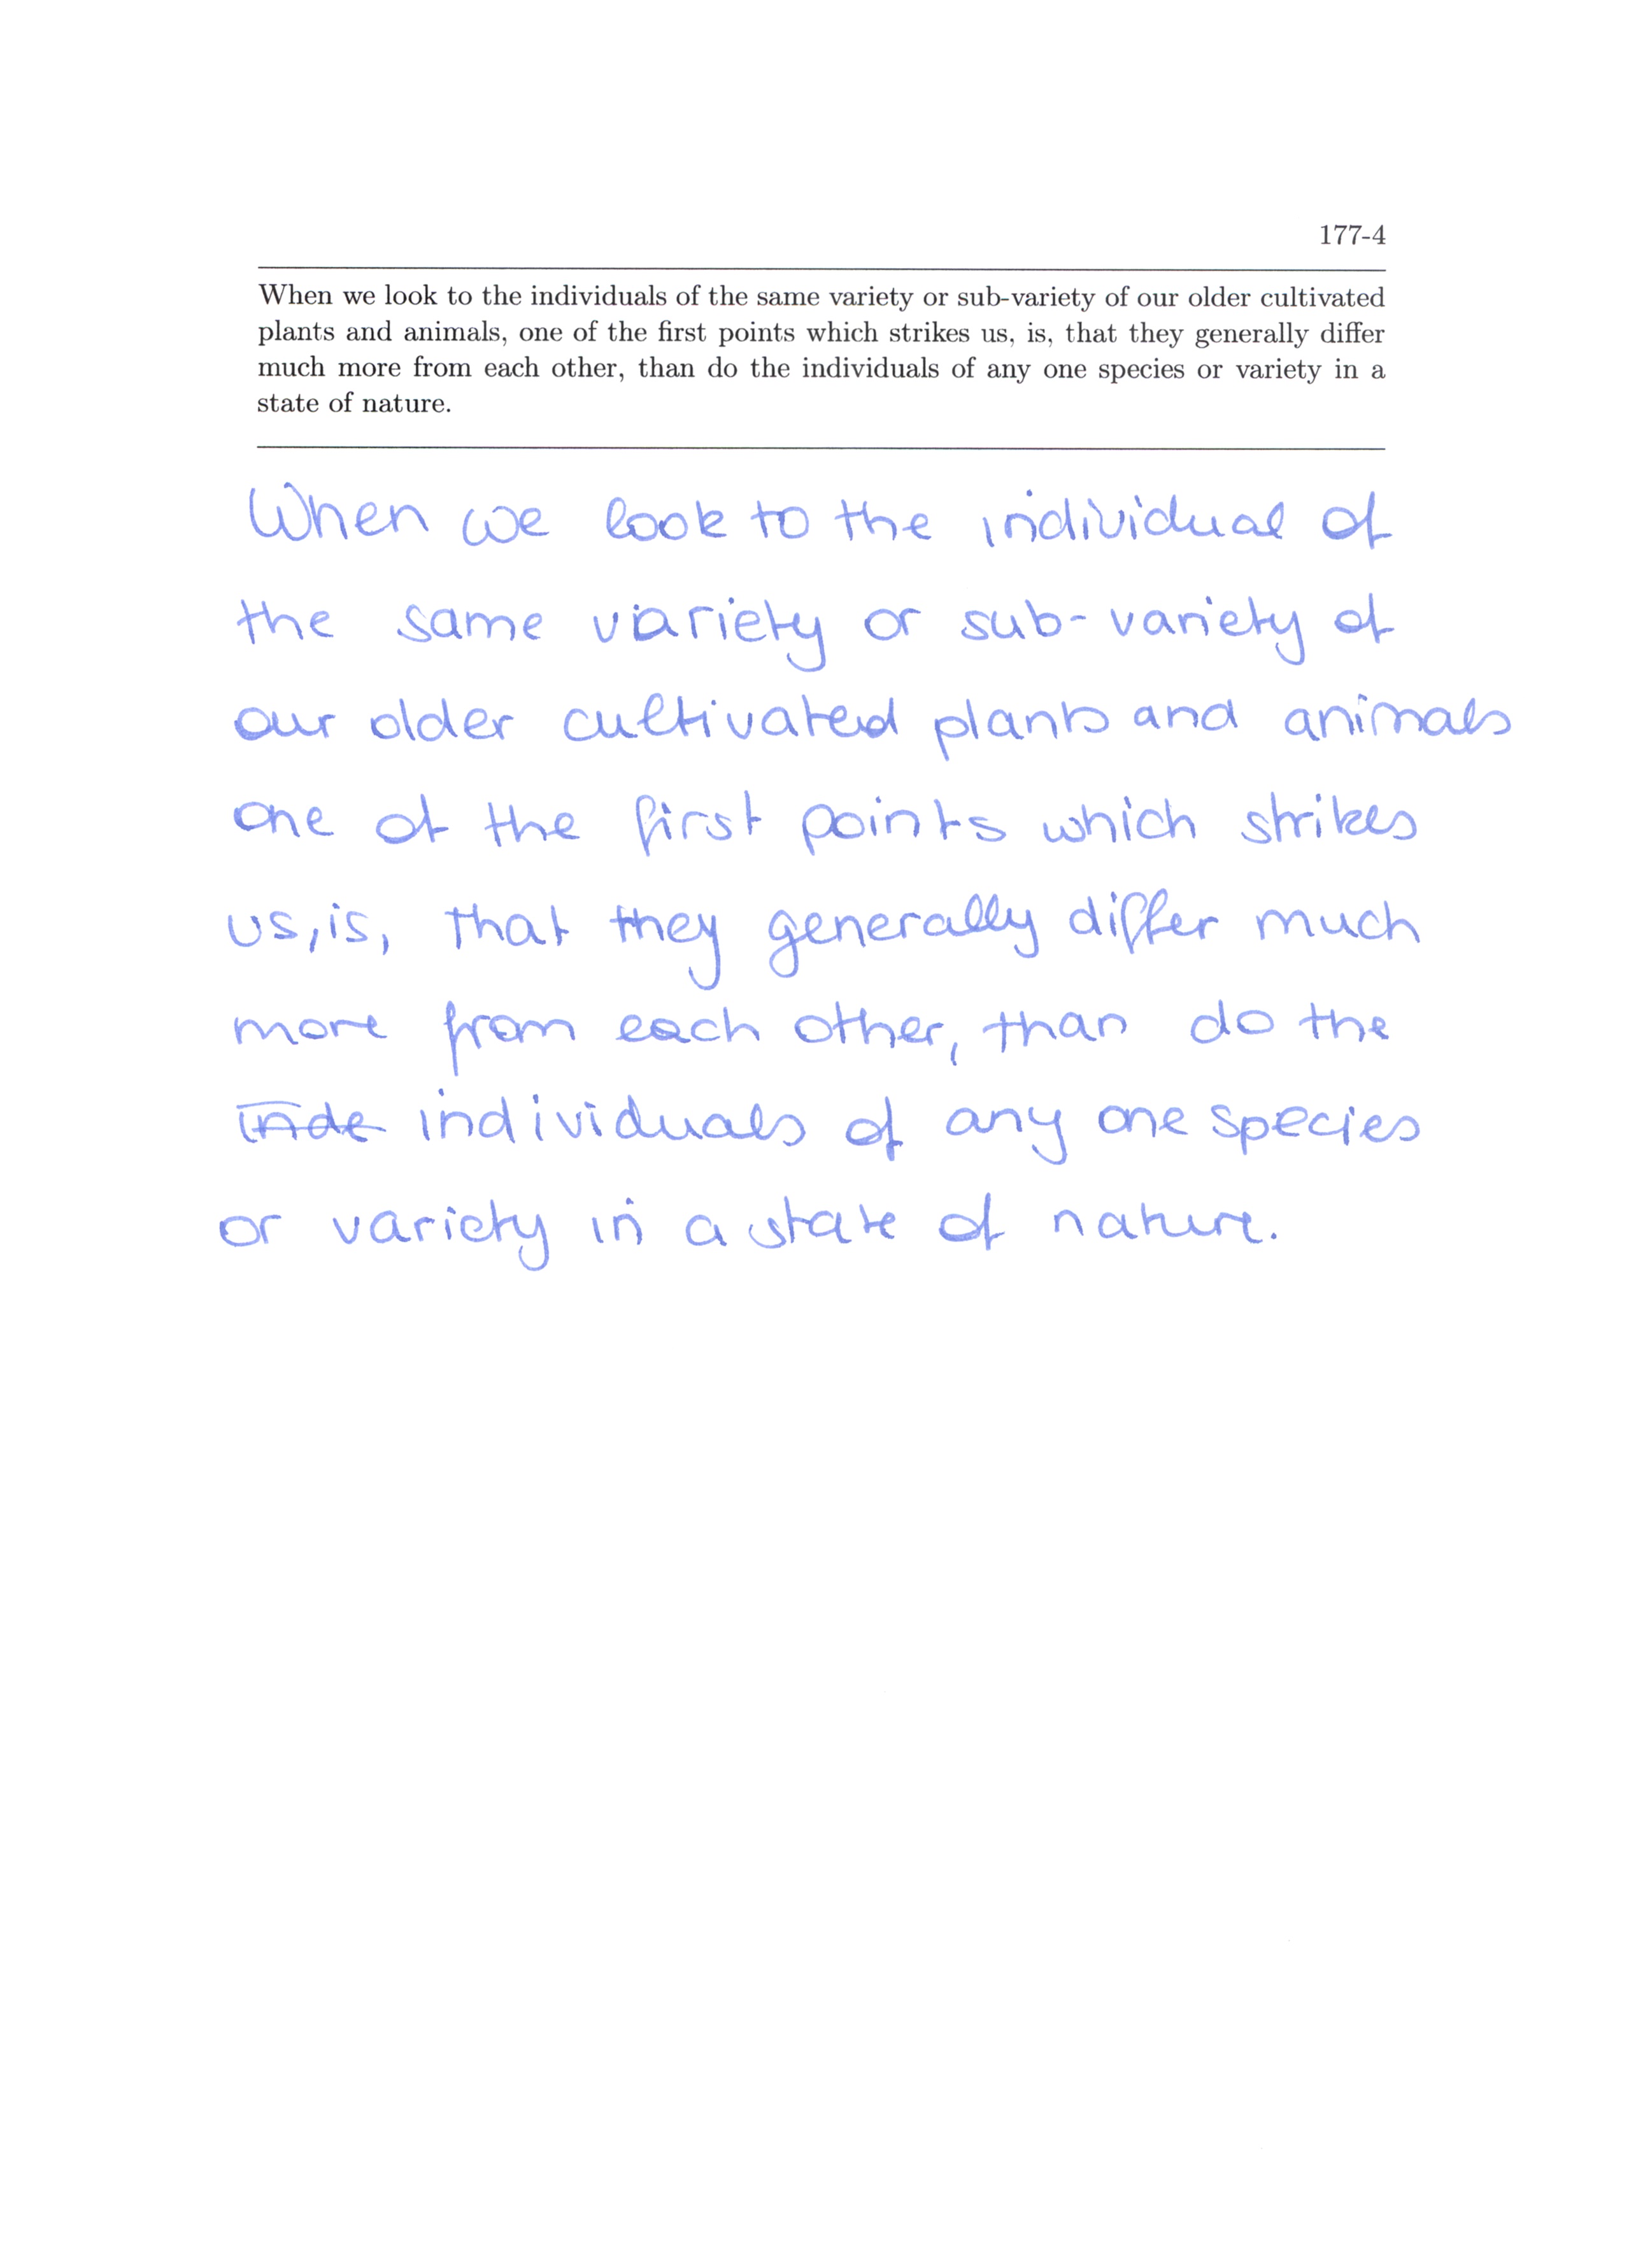 177-4
When we look to the individuals of the same variety or sub-variety of our older cultivated
plants and animals, one of the first points which strikes us, is, that they generally differ
much more from each other, than do the individuals of any one species or variety in a
state of nature.
When we look to the individual of
the same variety or sub-variety of
our older cultivated plants and animals
one of the first points which strikes
us, is, that they generally differ much
more from each other, than do the
individuals of any one species
or variety in a state of nature.